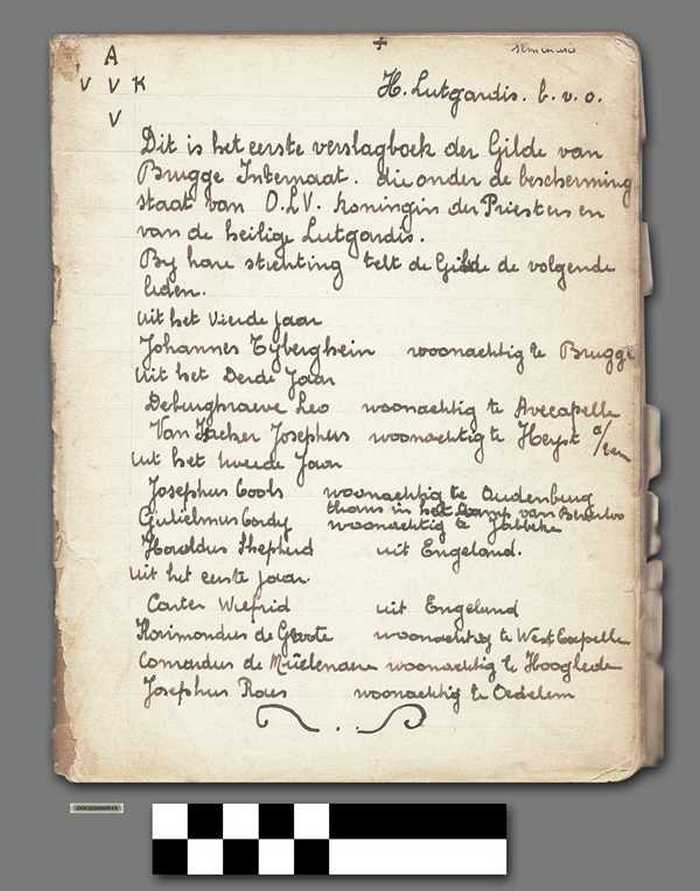 A
V V K
V
+
H. Lutgardis. b. v. o.
Dit is het eerste verslagboek der Gilde van
Brugge Internaat. die onder de bescherming
staat van O.L.V. Koningin der Priesters en
van de heilige Lutgardis.
By hare stichting telt de Gilde de volgende
leden.
Uit het Vierde Jaar
Johannes Tyberghein woonachtig te Brugge
Uit het Derde Jaar
Deburghraeve Leo woonachtig te Avecapelle
Van Josephus woonachtig te Heyst o/
Uit het tweede Jaar
Josephus Cools woonachtig te Oudenburg
thans in het Kamp van Beverloo
Gulielmus Cordy woonachtig te Jabbeke
Haroldus Shepherd uit Engeland.
Uit het eerste jaar
Carter Wilfrid uit Engeland
Florimondus de Groote woonachtig te West Capelle
Conrardus de woonachtig te Hooglede
Josephus Roels woonachtig te Oedelem